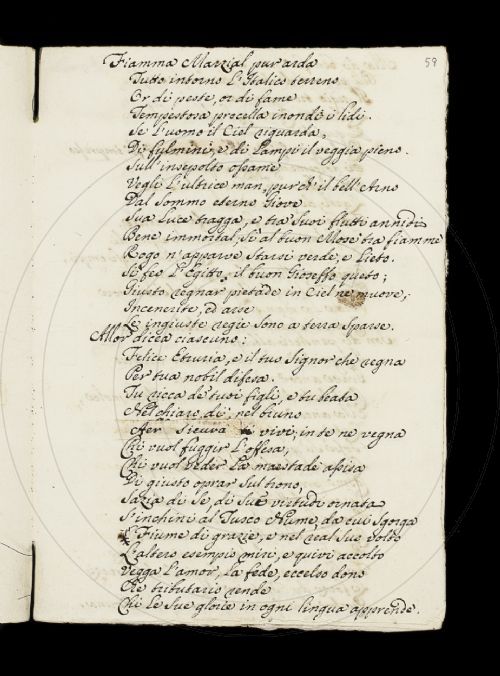 59
Fiamma Marzial pur arda
Tutto intorno L'Italico terreno
Or di peste, or di fame
Tempestosa procella inondi i lidi.
Se L'uomo il Ciel riguarda,
Di fulmini, e di Lampi il veggia pieno.
Sull'insepolto ossame
Vegli L'ultrice man, pur ch'il bell'Arno
Dal Sommo eterno Giove
Sua Luce tragga, e tra Suoi flutti annidi
Bene immortal, Sì al buon Mosè tra fiamme
Rogo n'apparve Starsi verde, e Lieto.
Sì feo L'Egitto, il buon Gioseffo queto;
Giusto regnar pietade in Ciel ne muove,
Incenerite, ed arse
Le ingiuste regie Sono a terra Sparse.
Allor dicea ciascuno:
Felice Etruria, e il tuo Signor che regna
Per tua nobil difesa.
Tu ricca de' tuoi figli, e tu beata
Nel chiaro dì; nel bruno
Aer Sicura vivi; in te ne vegna
Chi vuol fuggir L'offesa,
Chi vuol Veder La maestade assisa
Di giusto oprar Sul trono,
Sazia di Se, di Sue virtudi ornata
S'inchini al Tusco Nume, da cui Sgorga
Fiume di grazie, e nel real Suo volto
L'altero esempio miri, e quivi accolto
Vegga L'amor, La fede, eccelso dono
Che tributario rende
Chi Le Sue glorie in ogni Lingua apprende.